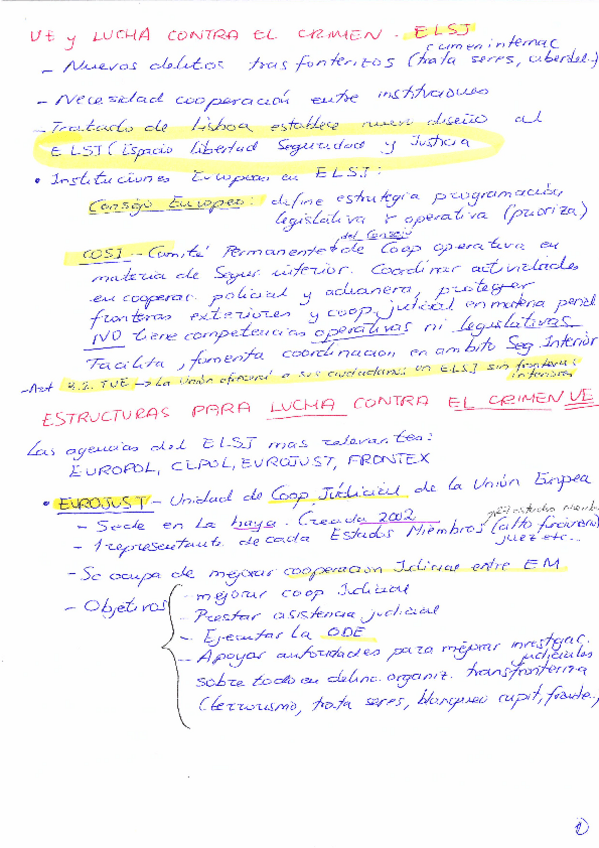 UE y LUCHA CONTRA EL CRIMEN. ELSJ
crimen internac
- Nuevos delitos trasfonterizos (trata seres, ciberdel.)
- Necesidad cooperación entre instituciones
- Tratado de Lisboa establece nuevo diseño al
ELSJ (Espacio libertad Seguridad y Justicia
• Instituciones Europeas en ELSJ:
Consejo Europeo: define estrategia programación
legislativa y operativa (prioriza)
del Consejo
COSI - Comité Permanente de Coop operativa en
materia de Segur interior. Coordinar actividades
en cooperac. policial y aduanera, proteger
fronteras exteriores y coop. judicial en materia penal
NO tiene competencias operativas ni legislativas.
Facilita, fomenta coordinacion en ambito Seg. Interior
- Art 3.2. TUE → La Unión ofrecerá a sus ciudadanos un ELSJ sin fronteras
interiores
ESTRUCTURAS PARA LUCHA CONTRA EL CRIMEN UE
Las agencias del ELSJ mas relevantes:
EUROPOL, CEPOL, EUROJUST, FRONTEX
• EUROJUST - Unidad de Coop Júdicial de la Unión Europea
- Sede en La haya. Creada 2002
- 1 representante de cada Estados Miembros (alto funcionario
juez etc...
- Se ocupa de mejorar cooperacion Jdicial entre EM
- Objetivos
- mejorar coop Jdicial
- Prestar asistencia judicial
- Ejecutar la ODE
- Apoyar autoridades para mejorar investigac.
judiciales
sobre todo en delinc. organiz. transfronteriza
(terrorismo, trata seres, blanqueo capit, fraude..,
1